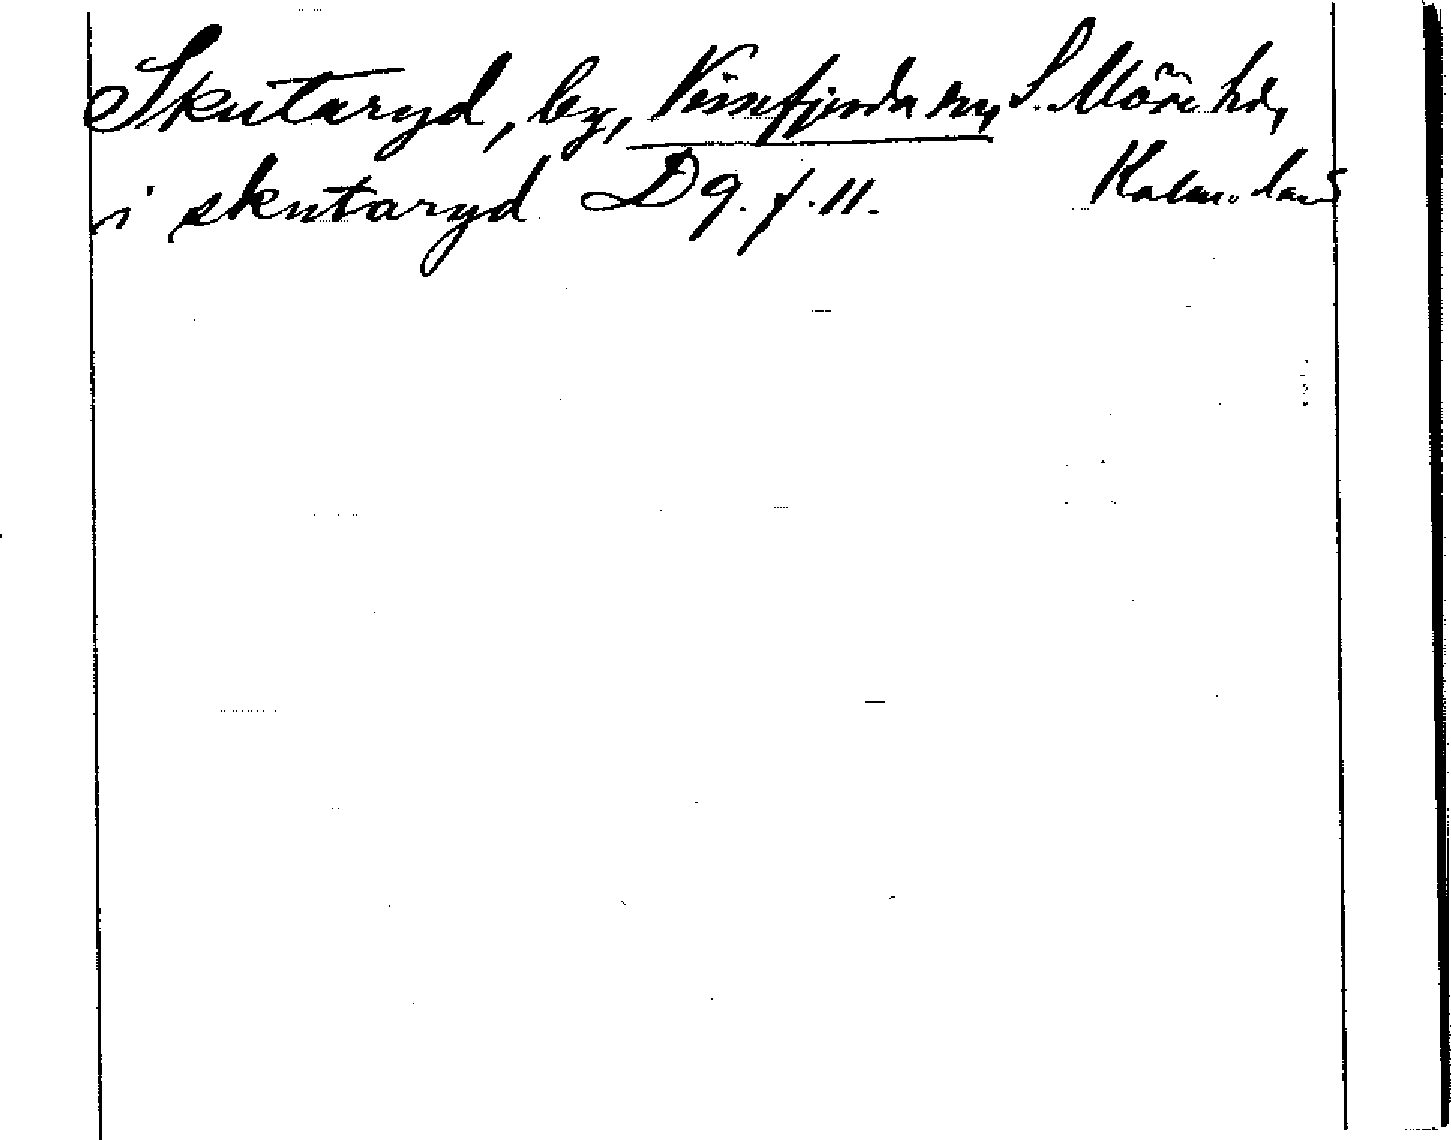 Skutaryd, by, Vissefjerda sn, S. Möre hd,
i skutaryd D 9. f. 11. Kalm. län